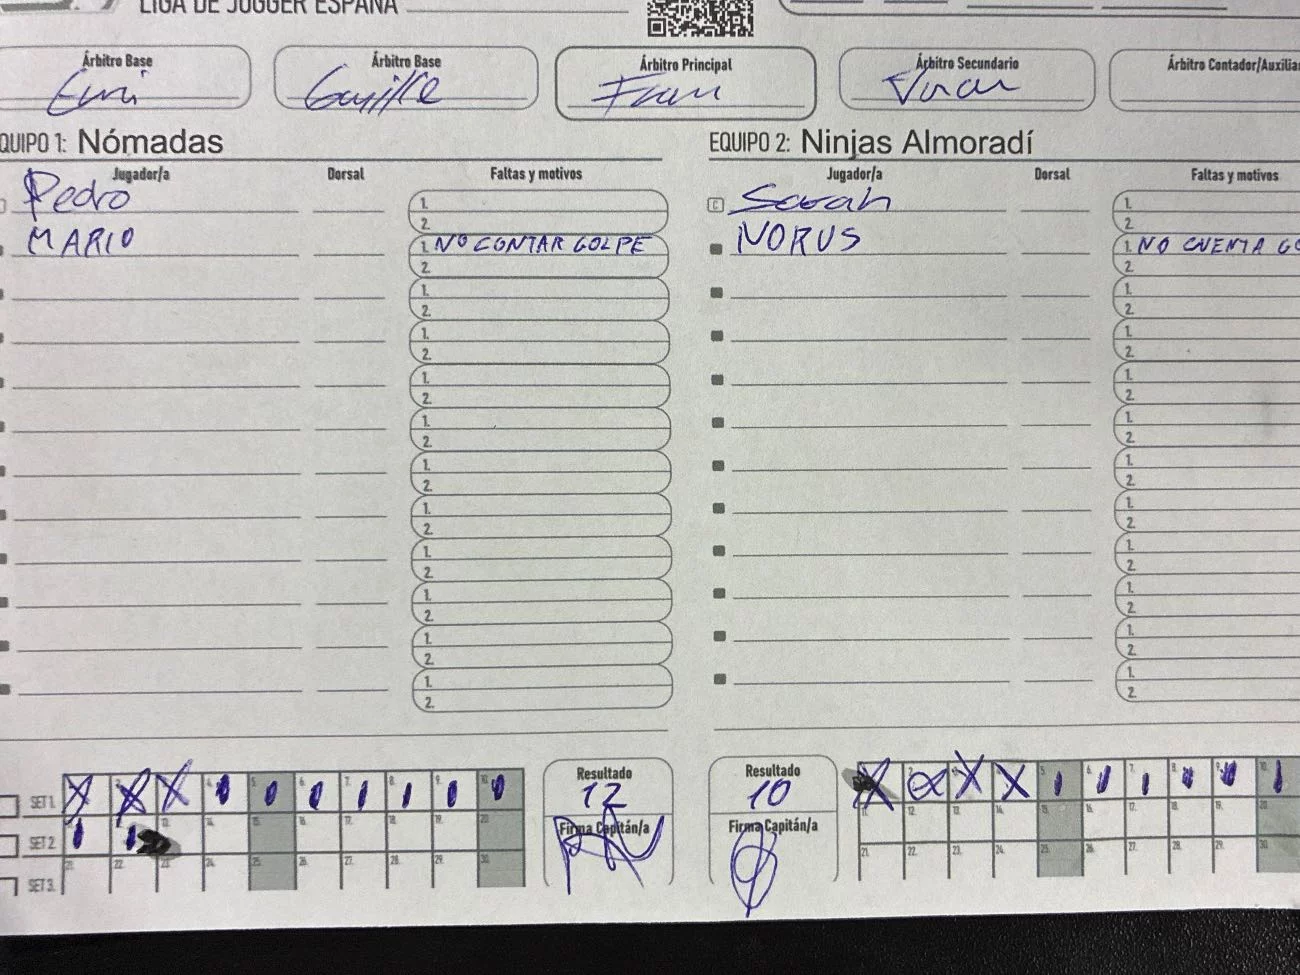 LIGA DE JUGGER ESPAÑA
Árbitro Base Árbitro Base Árbitro Principal Árbitro Secundario Árbitro Contador/Auxilia
Guille Fran Juan
QUIPO 1: Nómadas EQUIPO 2: Ninjas Almoradí
Jugador/a Dorsal Faltas y motivos Jugador/a Dorsal Faltas y motivos
Pedro 1. C Sarah 1.
2. 2.
MARIO 1. NO CONTAR GOLPE NORUS 1. NO CUENTA GO
2. 2.
1. 1.
2. 2.
1. 1.
2. 2.
1. 1.
2. 2.
1. 1.
2. 2.
1. 1.
2. 2.
1. 1.
2. 2.
1. 1.
2. 2.
1. 1.
2. 2.
1. 1.
2. 2.
1. 1.
2. 2.
SET 1. 5. 6. 7. 8. 9. 10. Resultado Resultado 5. 6. 7. 8. 9. 10.
12 10
SET 2. 13. 14. 15. 16. 17. 18. 19. 20. Firma Capitán/a Firma Capitán/a 11. 12. 13. 14. 15. 16. 17. 18. 19. 20.
SET 3. 21. 22. 23. 24. 25. 26. 27. 28. 29. 30. 21. 22. 23. 24. 25. 26. 27. 28. 29. 30.